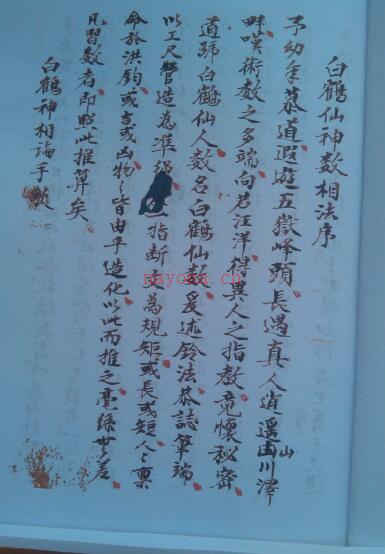 白鶴仙神数相法序
予幼年慕道遐遊五嶽峰頭長遇真人逍遥山川澤
畔嘆術数之多端向若江洋得異人之指教竟懷秘密
道號白鶴仙人数名白鶴仙数爰述鈴法恭誌筆端
以工尺營造為准繩指断定為規矩或長或短人々稟
命於洪鈞或吉或凶物々皆由乎造化以此而推之毫絲無差
凡習数者即照此推算矣
白鶴神相論手
nayona.cn